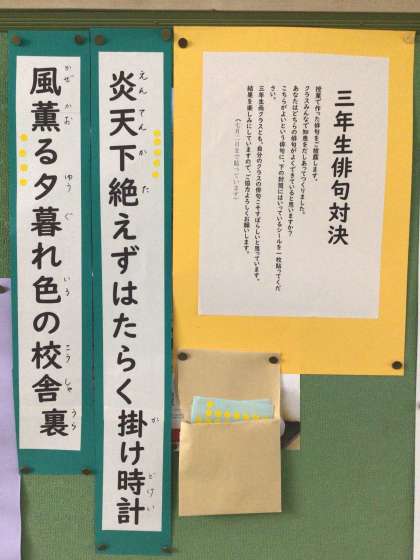 三年生俳句対決
授業で作った俳句をご披露します。
クラスみんなで知恵をだしあってつくりました。
あなたはどちらの俳句がよくできていると思いますか?
こちらがよいという俳句に、下の封筒にはいっているシールを一枚貼ってくだ
さい。
三年生両クラスとも、自分のクラスの俳句こそすばらしいと思っています。
結果を楽しみにしていますので、ご協力よろしくお願いします。
炎天下絶えずはたらく掛け時計
えんてんか
た
か
どけい
風薫る夕暮れ色の校舎裏
かぜかお
ゆうぐ
いろ
こうしゃ
うら